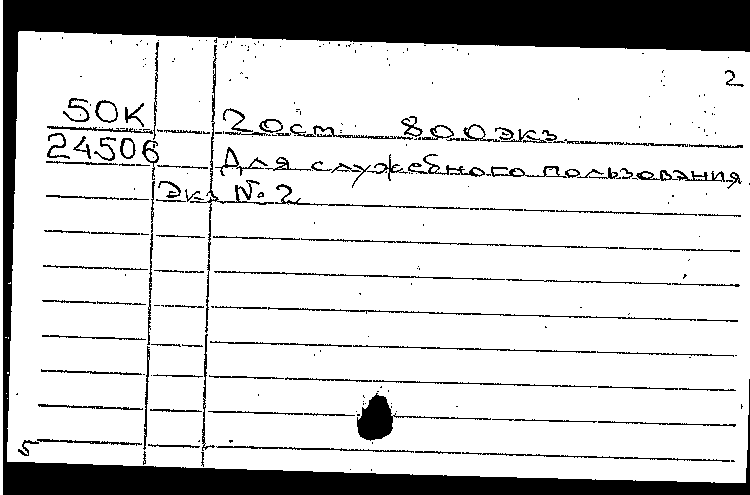 2
50К 20ст. 800экз.
24506 Для служебного пользования.
Экз №2
5